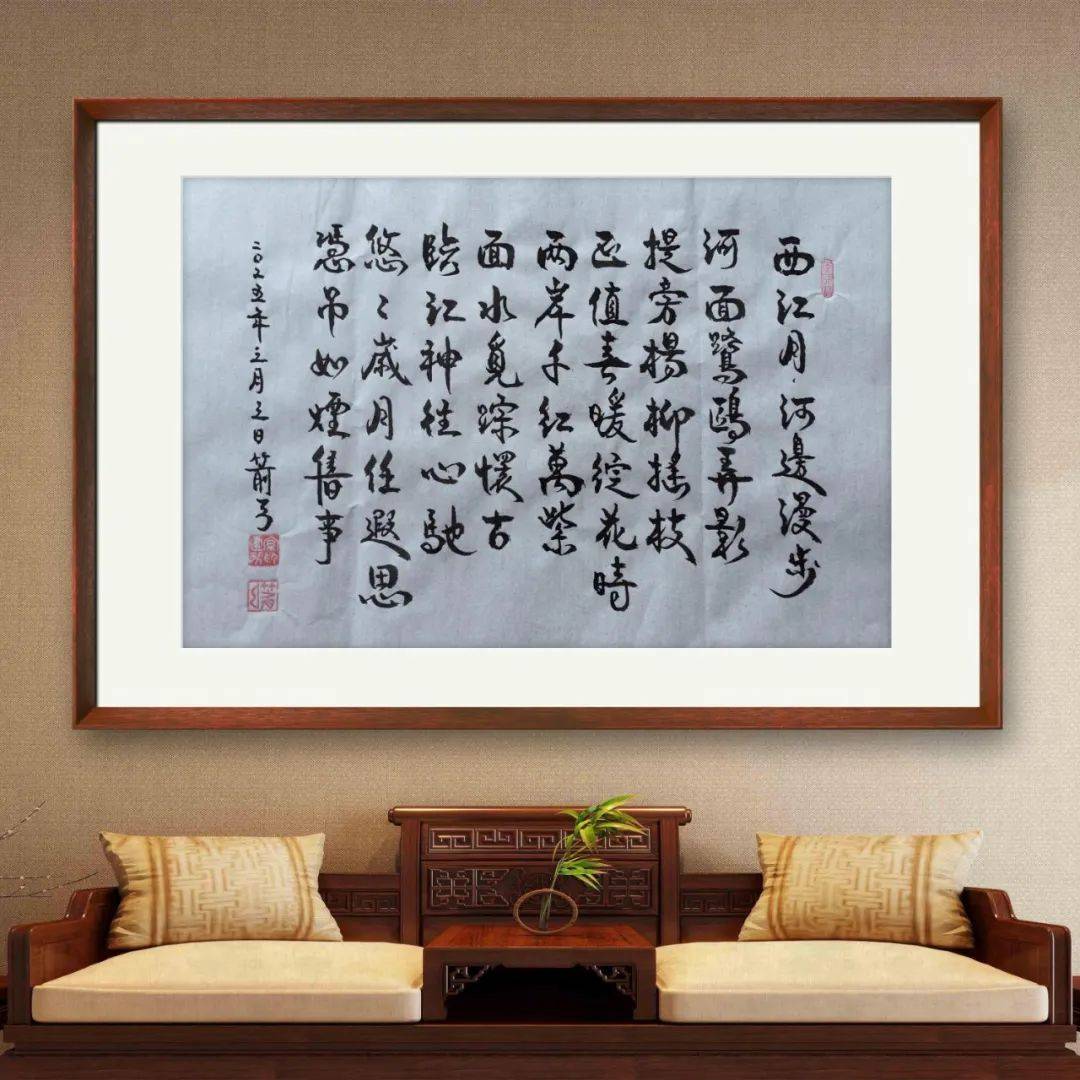 西江月·河邊漫步
河面鷺鷗弄影
提旁楊柳搖枝
正值春暖綻花時
兩岸千紅萬紫
面水覓踪懷古
臨江神往心馳
悠々歲月任遐思
憑吊如煙舊事
二〇二五年三月三日箭弓